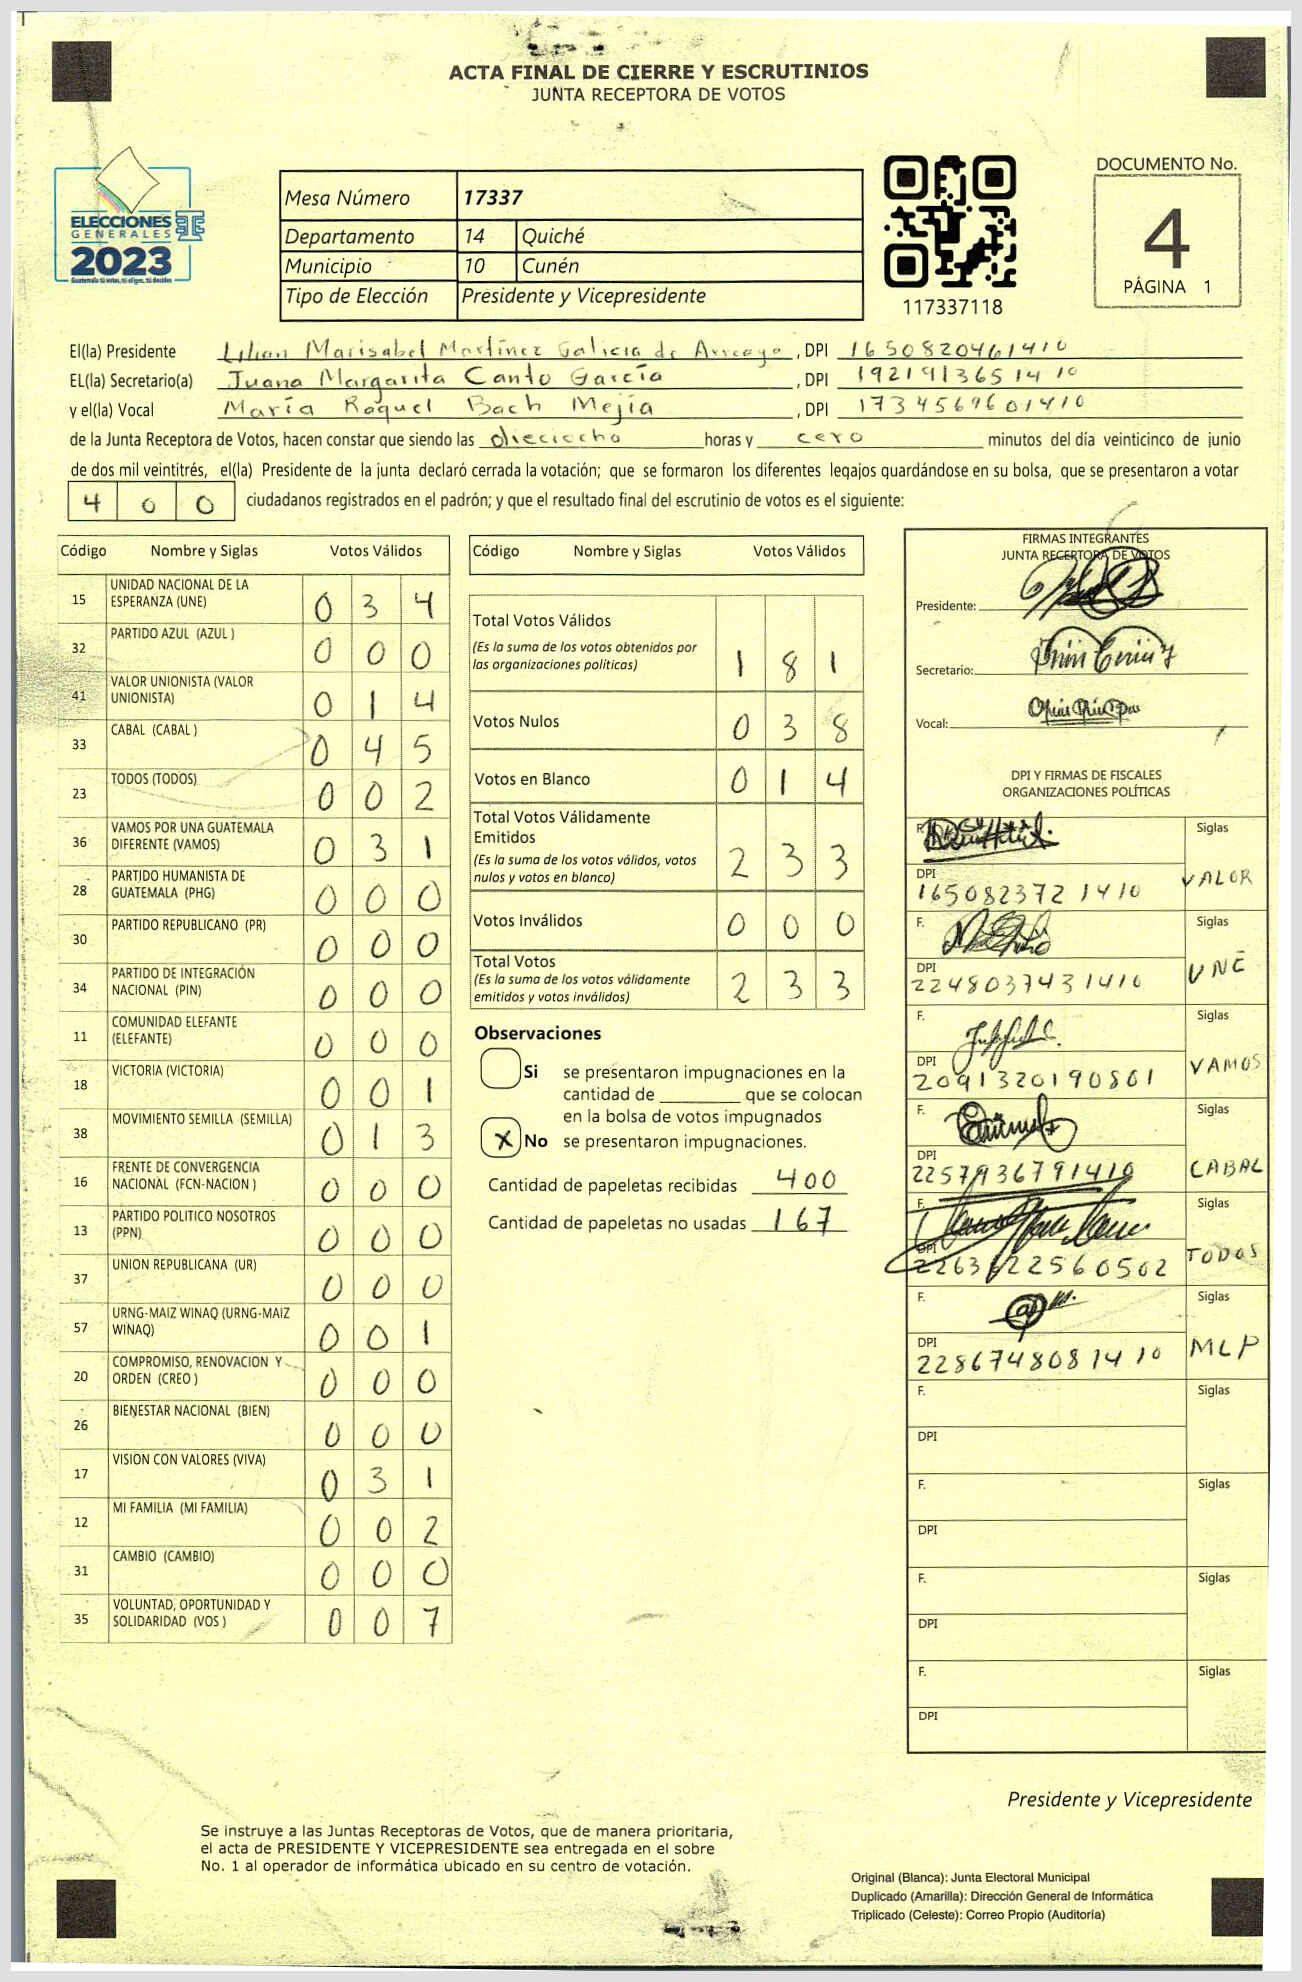 ACTA FINAL DE CIERRE Y ESCRUTINIOS
JUNTA RECEPTORA DE VOTOS
ELECCIONES
GENERALES
2023
Guatemala tú votas, tú eliges, tú decides
Mesa Número 17337
Departamento 14 Quiché
Municipio 10 Cunén
Tipo de Elección Presidente y Vicepresidente
117337118
DOCUMENTO No.
4
PÁGINA 1
El(la) Presidente Lilian Marisabel Martínez Galicia de Arreaga, DPI 1650820461410
EL(la) Secretario(a) Juana Margarita Canto García, DPI 1921913651410
y el(la) Vocal María Raquel Bach Mejía, DPI 1734569601410
de la Junta Receptora de Votos, hacen constar que siendo las dieciocho horas y cero minutos del día veinticinco de junio
de dos mil veintitrés, el(la) Presidente de la junta declaró cerrada la votación; que se formaron los diferentes legajos guardándose en su bolsa, que se presentaron a votar
400 ciudadanos registrados en el padrón; y que el resultado final del escrutinio de votos es el siguiente:
Código Nombre y Siglas Votos Válidos
15 UNIDAD NACIONAL DE LA ESPERANZA (UNE) 034
32 PARTIDO AZUL (AZUL ) 000
41 VALOR UNIONISTA (VALOR UNIONISTA) 014
33 CABAL (CABAL ) 045
23 TODOS (TODOS) 002
36 VAMOS POR UNA GUATEMALA DIFERENTE (VAMOS) 031
28 PARTIDO HUMANISTA DE GUATEMALA (PHG) 000
30 PARTIDO REPUBLICANO (PR) 000
34 PARTIDO DE INTEGRACIÓN NACIONAL (PIN) 000
11 COMUNIDAD ELEFANTE (ELEFANTE) 000
18 VICTORIA (VICTORIA) 001
38 MOVIMIENTO SEMILLA (SEMILLA) 013
16 FRENTE DE CONVERGENCIA NACIONAL (FCN-NACION ) 000
13 PARTIDO POLITICO NOSOTROS (PPN) 000
37 UNION REPUBLICANA (UR) 000
57 URNG-MAIZ WINAQ (URNG-MAIZ WINAQ) 001
20 COMPROMISO, RENOVACION Y ORDEN (CREO ) 000
26 BIENESTAR NACIONAL (BIEN) 000
17 VISION CON VALORES (VIVA) 031
12 MI FAMILIA (MI FAMILIA) 002
31 CAMBIO (CAMBIO) 000
35 VOLUNTAD, OPORTUNIDAD Y SOLIDARIDAD (VOS ) 007
Código Nombre y Siglas Votos Válidos
Total Votos Válidos
(Es la suma de los votos obtenidos por
las organizaciones políticas) 181
Votos Nulos 038
Votos en Blanco 014
Total Votos Válidamente
Emitidos
(Es la suma de los votos válidos, votos
nulos y votos en blanco) 233
Votos Inválidos 000
Total Votos
(Es la suma de los votos válidamente
emitidos y votos inválidos) 233
Observaciones
Si se presentaron impugnaciones en la
cantidad de ________ que se colocan
en la bolsa de votos impugnados
X No se presentaron impugnaciones.
Cantidad de papeletas recibidas 400
Cantidad de papeletas no usadas 167
FIRMAS INTEGRANTES
JUNTA RECEPTORA DE VOTOS
Presidente:
Secretario:
Vocal:
DPI Y FIRMAS DE FISCALES
ORGANIZACIONES POLÍTICAS
F. Siglas
DPI 165082372 1410 VALOR
F. Siglas
DPI 2248037431410 UNE
F. Siglas
DPI 2091320190801 VAMOS
F. Siglas
DPI 2257936791410 CABAL
F. Siglas
DPI 2263622560502 TODOS
F. Siglas
DPI 2286748081410 MLP
F. Siglas
DPI
F. Siglas
DPI
F. Siglas
DPI
F. Siglas
DPI
Presidente y Vicepresidente
Se instruye a las Juntas Receptoras de Votos, que de manera prioritaria,
el acta de PRESIDENTE Y VICEPRESIDENTE sea entregada en el sobre
No. 1 al operador de informática ubicado en su centro de votación.
Original (Blanca): Junta Electoral Municipal
Duplicado (Amarilla): Dirección General de Informática
Triplicado (Celeste): Correo Propio (Auditoría)